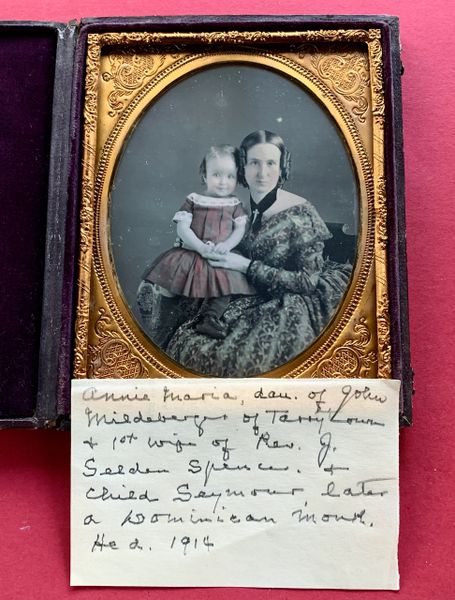 Annie Maria, dau. of John
Mildeberger of Tarrytown
& 1st wife of Rev. J.
Selden Spencer. &
child Seymour, later
a Dominican Monk.
He d. 1914